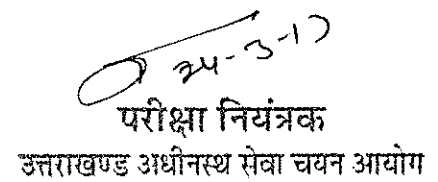 24-3-17
परीक्षा नियंत्रक
उत्तराखण्ड अधीनस्थ सेवा चयन आयोग